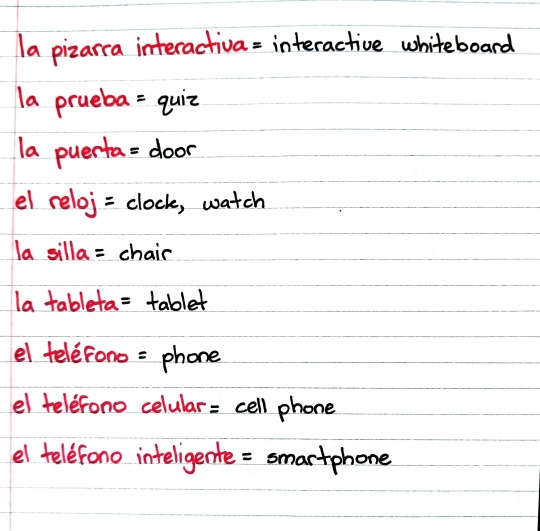 la pizarra interactiva = interactive whiteboard
la prueba = quiz
la puerta = door
el reloj = clock, watch
la silla = chair
la tableta = tablet
el teléfono = phone
el teléfono celular = cell phone
el teléfono inteligente = smartphone